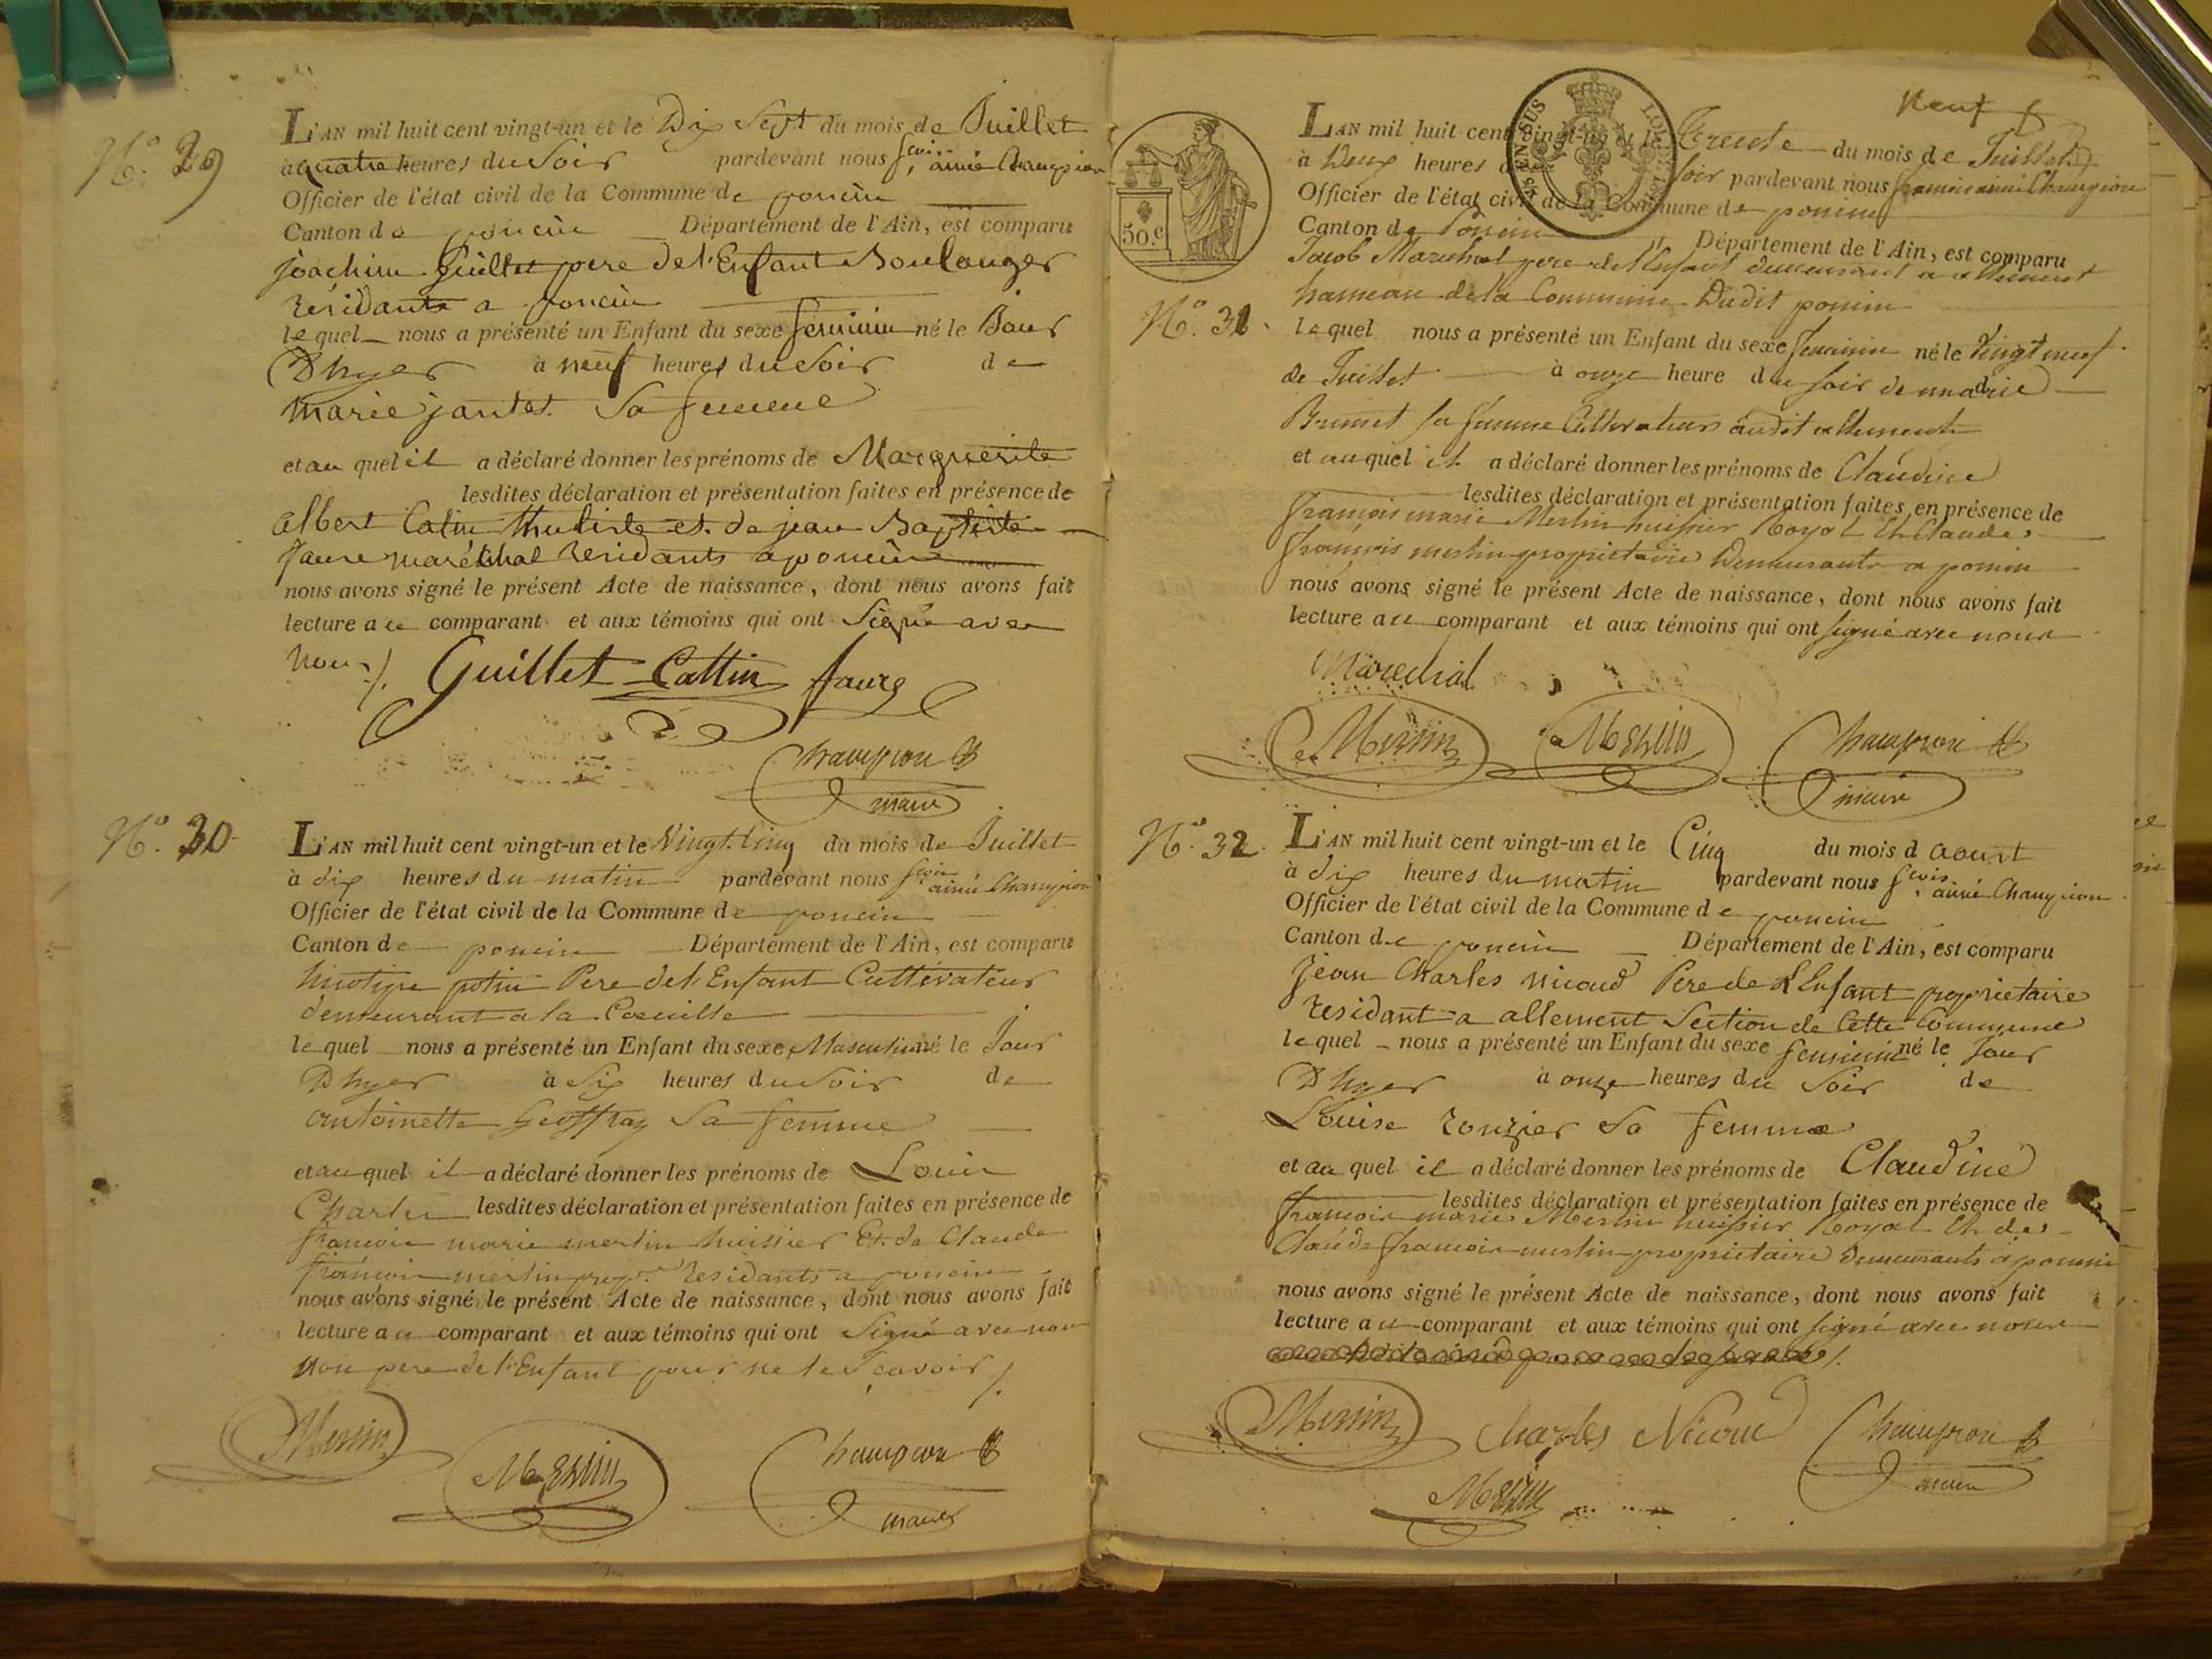 N.º 29
L'AN mil huit cent vingt-un et le Dix Sept du mois de Juillet
à quatre heures du Soir pardevant nous fçois aimé Champion
Officier de l'état civil de la Commune de poncin
Canton de poncin Département de l'Ain, est comparu
joachim Guillet pere de l'Enfant Boulanger
résidants a poncin
le quel nous a présenté un Enfant du sexe feminin né le Jour
D'hyer à neuf heures du Soir de
marie jantet Sa femme
et au quel il a déclaré donner les prénoms de Marguerite
lesdites déclaration et présentation faites en présence de
albert Catin et de jean Baptiste
faure maréchal residants a poncin
nous avons signé le présent Acte de naissance, dont nous avons fait
lecture a ce comparant et aux témoins qui ont Signé avec
nous ./.
Guillet Cattin faure
Champion
maire
N.º 30
L'AN mil huit cent vingt-un et le Vingt Cinq du mois de Juillet
à dix heures du matin pardevant nous fçois aimé Champion
Officier de l'état civil de la Commune de poncin
Canton de poncin Département de l'Ain, est comparu
potin Pere de l'Enfant Cultivateur
demeurant a la
le quel nous a présenté un Enfant du sexe Masculin né le Jour
D'hyer à Six heures du Soir de
antoinette Geoffray Sa femme
et au quel il a déclaré donner les prénoms de Louis
Charles lesdites déclaration et présentation faites en présence de
françois marie merlin huissier Et de Claude
françois merlin prop.re residants a poncin
nous avons signé le présent Acte de naissance, dont nous avons fait
lecture au comparant et aux témoins qui ont Signé avec nous
non pere de l'Enfant pour ne le Scavoir ./.
Merlin
Merlin
Champion
maire
neuf
50.c
L'AN mil huit cent vingt-un et le Trente du mois de Juillet
à Deux heures du Soir pardevant nous françois aimé Champion
Officier de l'état civil de la Commune de poncin
Canton de Poncin Département de l'Ain, est comparu
Jacob Marechal pere de l'Enfant demeurant a allement
hameau de la Commune Dudit poncin
N.º 31.
le quel nous a présenté un Enfant du sexe feminin né le Vingt neuf
de Juillet à onze heure du soir de marie
Brunet sa femme Cultivateurs audit allement
et au quel il a déclaré donner les prénoms de Claudine
lesdites déclaration et présentation faites en présence de
françois marie Merlin huissier Royal Et Claude
françois merlin proprietaire Demeurants a poncin
nous avons signé le présent Acte de naissance, dont nous avons fait
lecture au comparant et aux témoins qui ont signé avec nous
Marechal
Merlin
Merlin
Champion
maire
N.º 32.
L'AN mil huit cent vingt-un et le Cinq du mois d aoust
à dix heures du matin pardevant nous fçois aimé Champion
Officier de l'état civil de la Commune de poncin
Canton de poncin Département de l'Ain, est comparu
Jean Charles nicoud Pere de L'Enfant proprietaire
residant a allement Section de Cette Commune
le quel nous a présenté un Enfant du sexe feminin né le Jour
D'hyer à onze heures du Soir de
Louise ronzier Sa femme
et au quel il a déclaré donner les prénoms de Claudine
lesdites déclaration et présentation faites en présence de
françois marie Merlin huissier Royal Et de
Claude françois merlin proprietaire demeurants a poncin
nous avons signé le présent Acte de naissance, dont nous avons fait
lecture au comparant et aux témoins qui ont signé avec nous
Merlin
Charles Nicoud
Champion
maire
Merlin